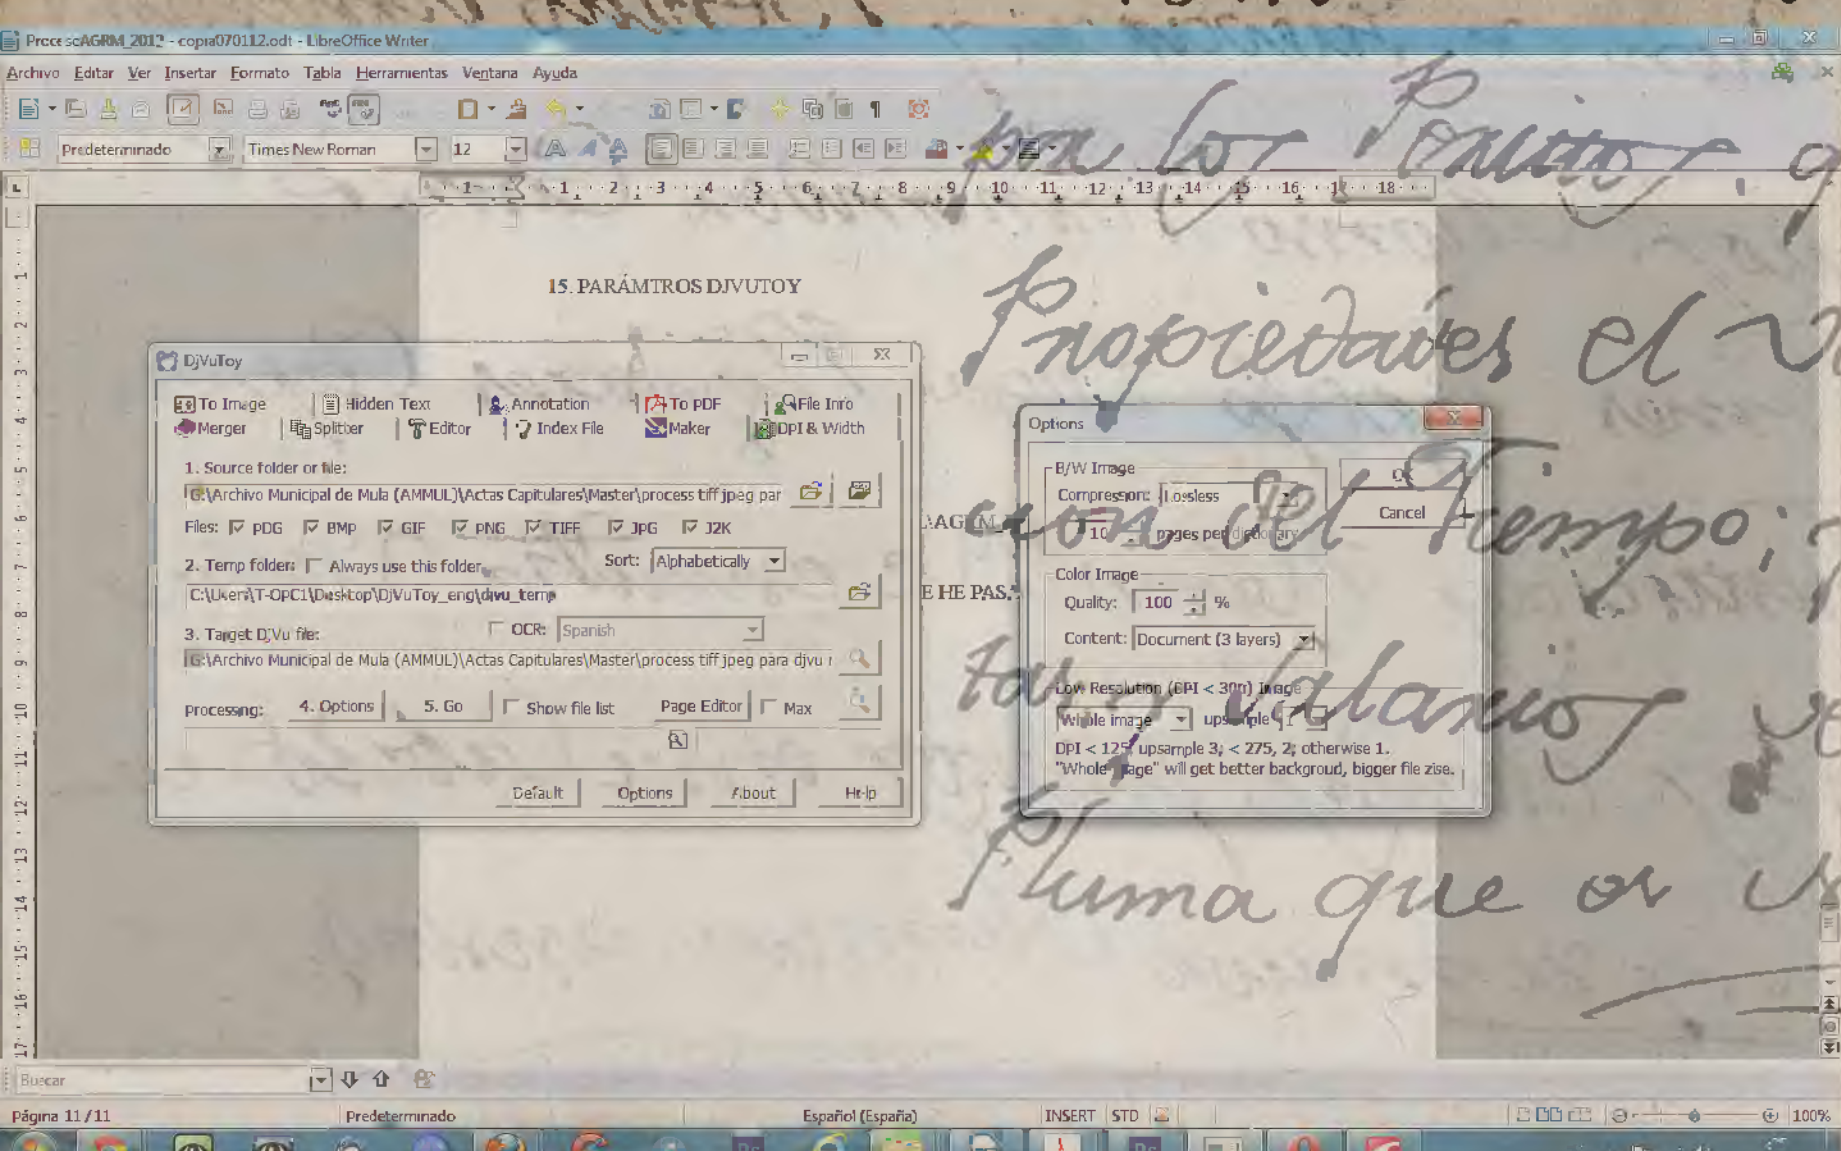 ProcesoAGRM_2012 - copia070112.odt - LibreOffice Writer
Archivo Editar Ver Insertar Formato Tabla Herramientas Ventana Ayuda
Predeterminado Times New Roman 12
1 1 2 3 4 5 6 7 8 9 10 11 12 13 14 15 16 17 18
por los
15. PARÁMTROS DJVUTOY
Propiedades el
DjVuToy
To Image Hidden Text Annotation To PDF File Info
Merger Splitter Editor Index File Maker DPI & Width
1. Source folder or file:
G:\Archivo Municipal de Mula (AMMUL)\Actas Capitulares\Master\process tiff jpeg par
Files: PDG BMP GIF PNG TIFF JPG J2K
2. Temp folder: Always use this folder Sort: Alphabetically
C:\Users\T-OPC1\Desktop\DjVuToy_eng\djvu_temp
3. Target DjVu file: OCR: Spanish
G:\Archivo Municipal de Mula (AMMUL)\Actas Capitulares\Master\process tiff jpeg para djvu
Processing: 4. Options 5. Go Show file list Page Editor Max
Default Options About Help
E HE PAS
Options
B/W Image
OK
Compression: Lossless
Cancel
10 pages per dictionary
Color Image
Quality: 100 %
Content: Document (3 layers)
Low Resolution (DPI < 300) Image
Whole image upsample 1
DPI < 125, upsample 3; < 275, 2; otherwise 1.
"Whole page" will get better backgroud, bigger file zise.
cion del Tiempo;
Pluma que os
1 2 3 4 5 6 7 8 9 10 11 12 13 14 15 16 17
Buscar
Página 11 / 11 Predeterminado Español (España) INSERT STD 100%